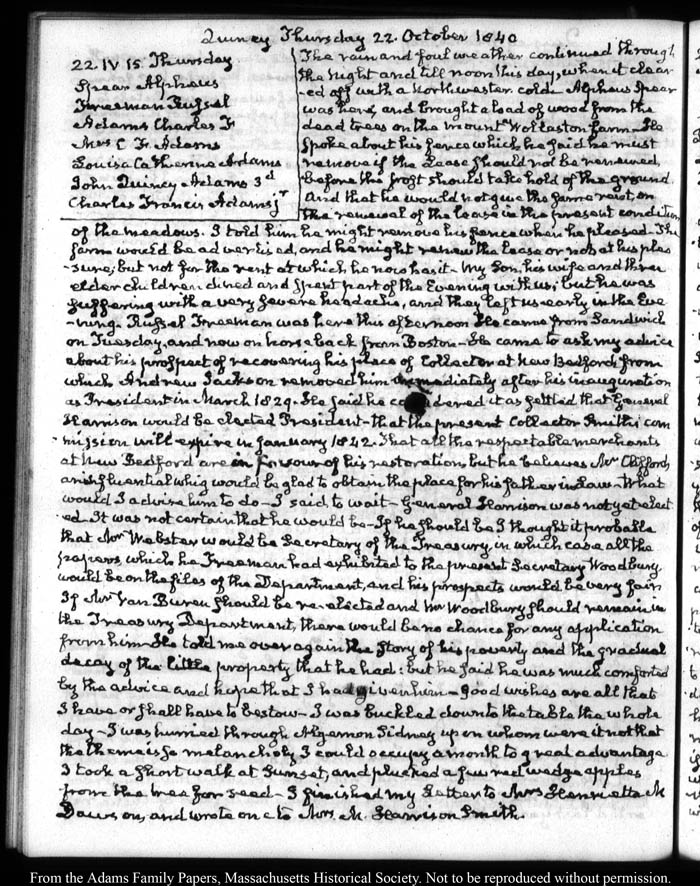 Quincy Thursday 22. October 1840
22. IV 15. Thursday.
Spear Alpheus
Freeman Russel
Adams Charles F
Mrs C. F. Adams
Louisa Catherine Adams
John Quincy Adams 3d
Charles Francis Adams jr
The rain and foul weather continued through
the Night and till noon this day, when it clear
-ed off with a Northwester cold. Alpheus Spear
was here, and brought a load of wood from the
dead trees on the mount Wollaston farm. He
spoke about his fence which he said he must
remove if the Lease should not be renewed,
before the frost should take hold of the ground.
And that he would not give the same rent, on
the renewal of the lease in the present condition
of the meadows. I told him he might remove his fence when he pleased. The
farm would be advertised, and he might renew the Lease or not at his plea
-sure, but not for the rent at which he now has it. My Son, his wife and three
elder children dined and spent part of the Evening with us; but he was
suffering with a very severe headache, and they left us early in the Eve
-ning. Russel Freeman was here this afternoon. He came from Sandwich
on Tuesday, and now on horseback from Boston. He came to ask my advice
about his prospect of recovering his place of Collector at New Bedford, from
which Andrew Jackson removed him immediately after his inauguration
as President in March 1829. He said he considered it as settled that General
Harrison would be elected President—that the present Collector Smith's com
-mission will expire in January 1842. That all the respectable merchants
at New Bedford are in favour of his restoration, but he believes Mr Clifford,
an influential whig would be glad to obtain the place for his father in Law. What
would I advise him to do—I said, to wait—General Harrison was not yet elect
-ed. It was not certain that he would be—If he should be I thought it probable
that Mr Webster would be Secretary of the Treasury, in which case all the
papers, which he Freeman had exhibited to the present Secretary Woodbury,
would be on the files of the Department, and his prospects would be very fair
If Mr Van Buren should be re-elected and Mr Woodbury should remain in
the Treasury Department, there would be no chance for any application
from him. He told me over again the story of his poverty and the gradual
decay of the little property that he had: but he said he was much comforted
by the advice and hope that I had given him—good wishes are all that
I have or shall have to bestow—I was buckled down to the table the whole
day—I was hurried through Algernon Sidney upon whom were it not that
the theme is so melancholy I could occupy a month to great advantage
I took a short walk at Sunset, and plucked a few red wedge apples
from the tree for seed—I finished my Letter to Mrs Henrietta M
Dawson, and wrote one to Mrs M. Harrison Smith.
From the Adams Family Papers, Massachusetts Historical Society. Not to be reproduced without permission.